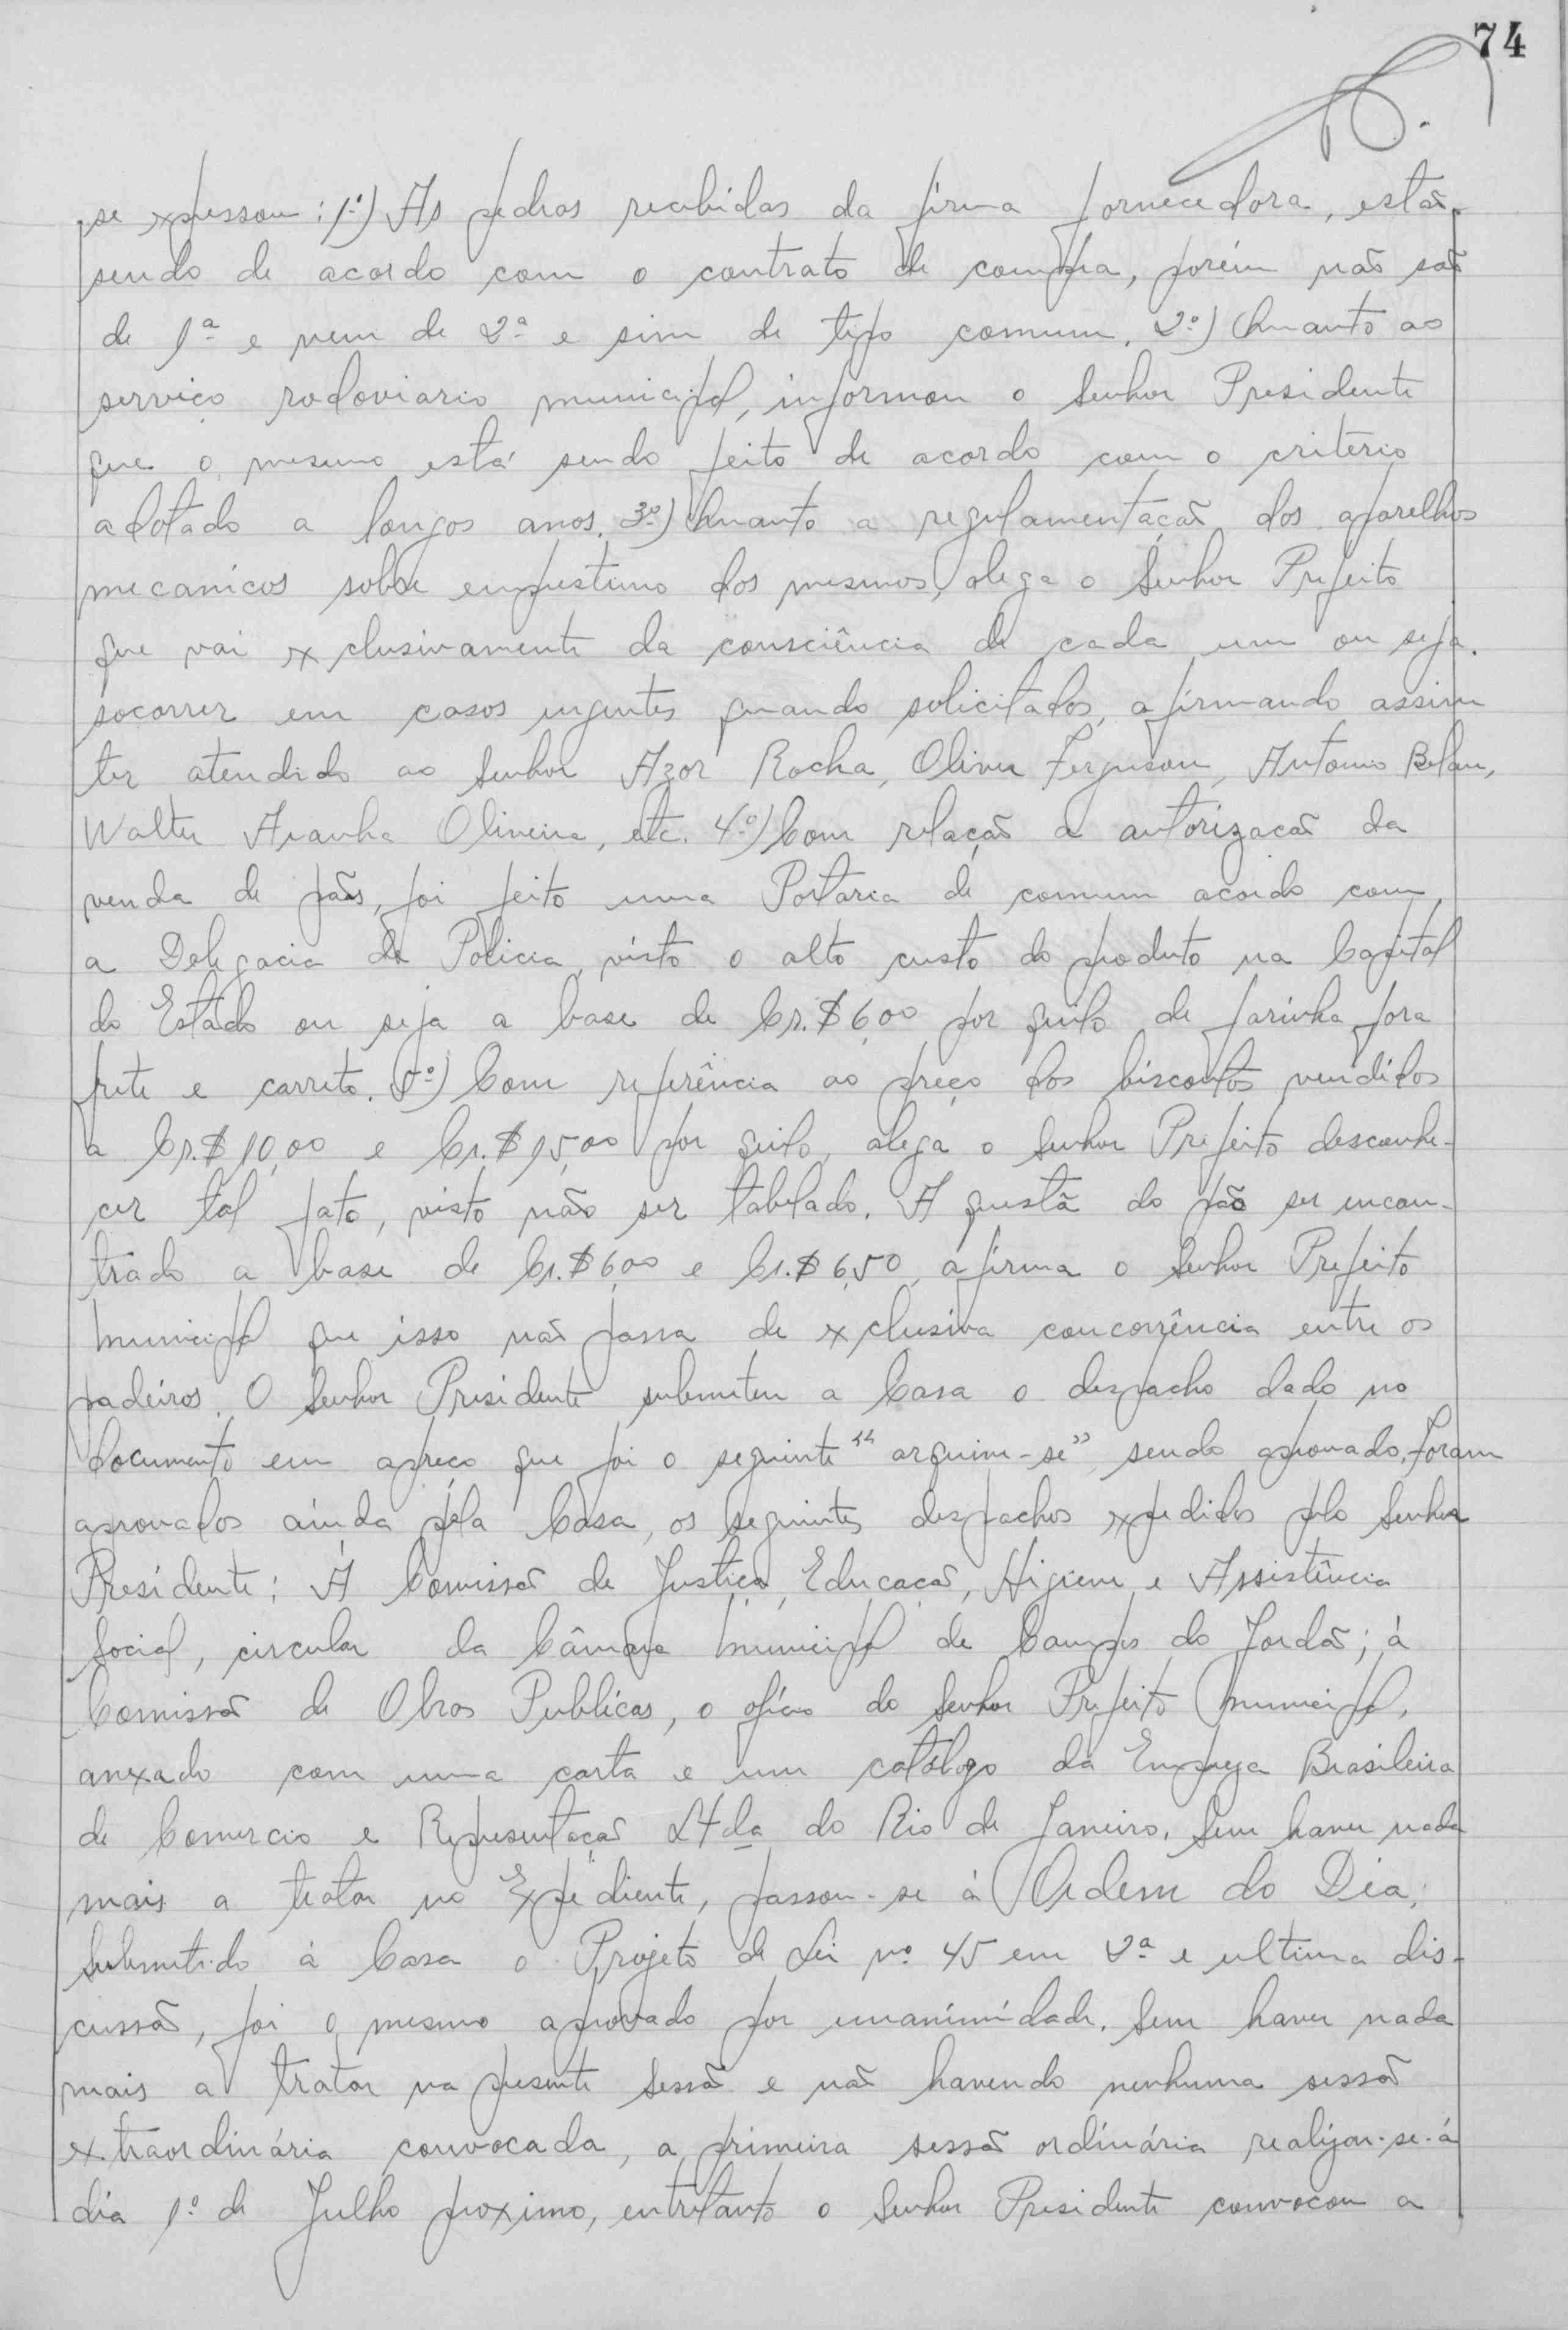 74
se expressou: 1º) As pedras recebidas da firma fornecedora, estão
sendo de acordo com o contrato de compra, porém não são
de 1ª e nem de 2ª e sim de tipo comum. 2º) Quanto ao
serviço rodoviario municipal, informou o Senhor Presidente
que o mesmo está sendo feito de acordo com o criterio
adotado a longos anos. 3º) Quanto a regulamentação dos aparelhos
mecanicos sobre emprestimo dos mesmos, alega o Senhor Prefeito
que vai exclusivamente da consciência de cada um ou seja.
socorrer em casos urgentes quando solicitados, afirmando assim
ter atendido ao Senhor Azor Rocha, Oliver Ferguson, Antonio Belan,
Walter Aranha Oliveira, etc. 4º) Com relação a autorização da
venda de pães, foi feito uma Portaria de comum acordo com
a Delegacia de Policia, visto o alto custo do produto na Capital
do Estado ou seja a base de Cr.$6,00 por quilo de farinha fora
frete e carreto. 5º) Com referência ao preço dos biscoutos vendidos
a Cr.$10,00 e Cr.$15,00 por quilo, alega o Senhor Prefeito desconhe-
cer tal fato, visto não ser tabelado. A questã do pão ser encon-
trado a base de Cr.$6,00 e Cr.$6,50, afirma o Senhor Prefeito
Municipal que isso não passa de exclusiva concorrência entre os
padeiros. O Senhor Presidente submeteu a Casa o despacho dado no
documento em apreço que foi o seguinte "arquive-se" sendo aprovado. Foram
aprovados ainda pela Casa, os seguintes despachos expedidos pelo Senhor
Presidente: Á Comissão de Justiça, Educação, Higiene e Assistência
Social, circular da Câmara Municipal de Campos do Jordão; á
Comissão de Obras Publicas, o ofício do Senhor Prefeito Municipal,
anexado com uma carta e um catálogo da Empreza Brasileira
de Comercio e Representação Ltda do Rio de Janeiro. Sem haver nada
mais a tratar no Expediente, passou-se á Ordem do Dia.
Submetido á Casa o Projeto de Lei nº 45 em 2ª e ultima dis-
cussão, foi o mesmo aprovado por unanimidade. Sem haver nada
mais a tratar na presente Sessão e não havendo nenhuma sessão
extraordinária convocada, a primeira sessão ordinária realizar-se-á
dia 1º de Julho proximo, entretanto o Senhor Presidente convocou a